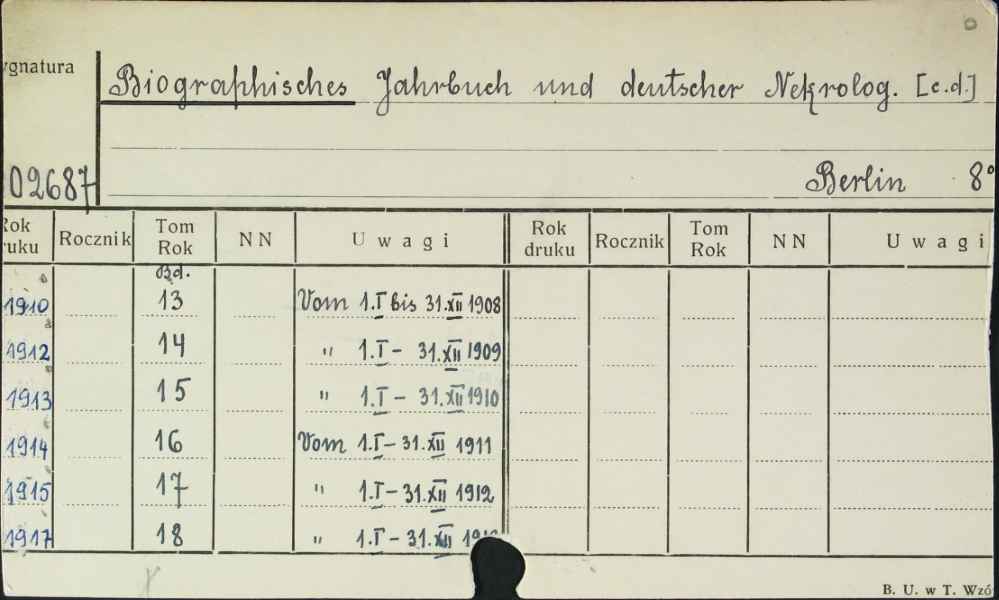 ygnatura
Biographisches Jahrbuch und deutscher Nekrolog. [c.d.]
02687
Berlin 8°
Rok Rocznik Tom NN Uwagi Rok Rocznik Tom NN Uwagi
ruku Rok druku Rok
Bd.
1910 13 Vom 1.I bis 31.XII 1908
1912 14 " 1.I - 31.XII 1909
1913 15 " 1.I - 31.XII 1910
1914 16 Vom 1.I - 31.XII 1911
1915 17 " 1.I - 31.XII 1912
1917 18 " 1.I - 31.XII
B. U. w T. Wzó